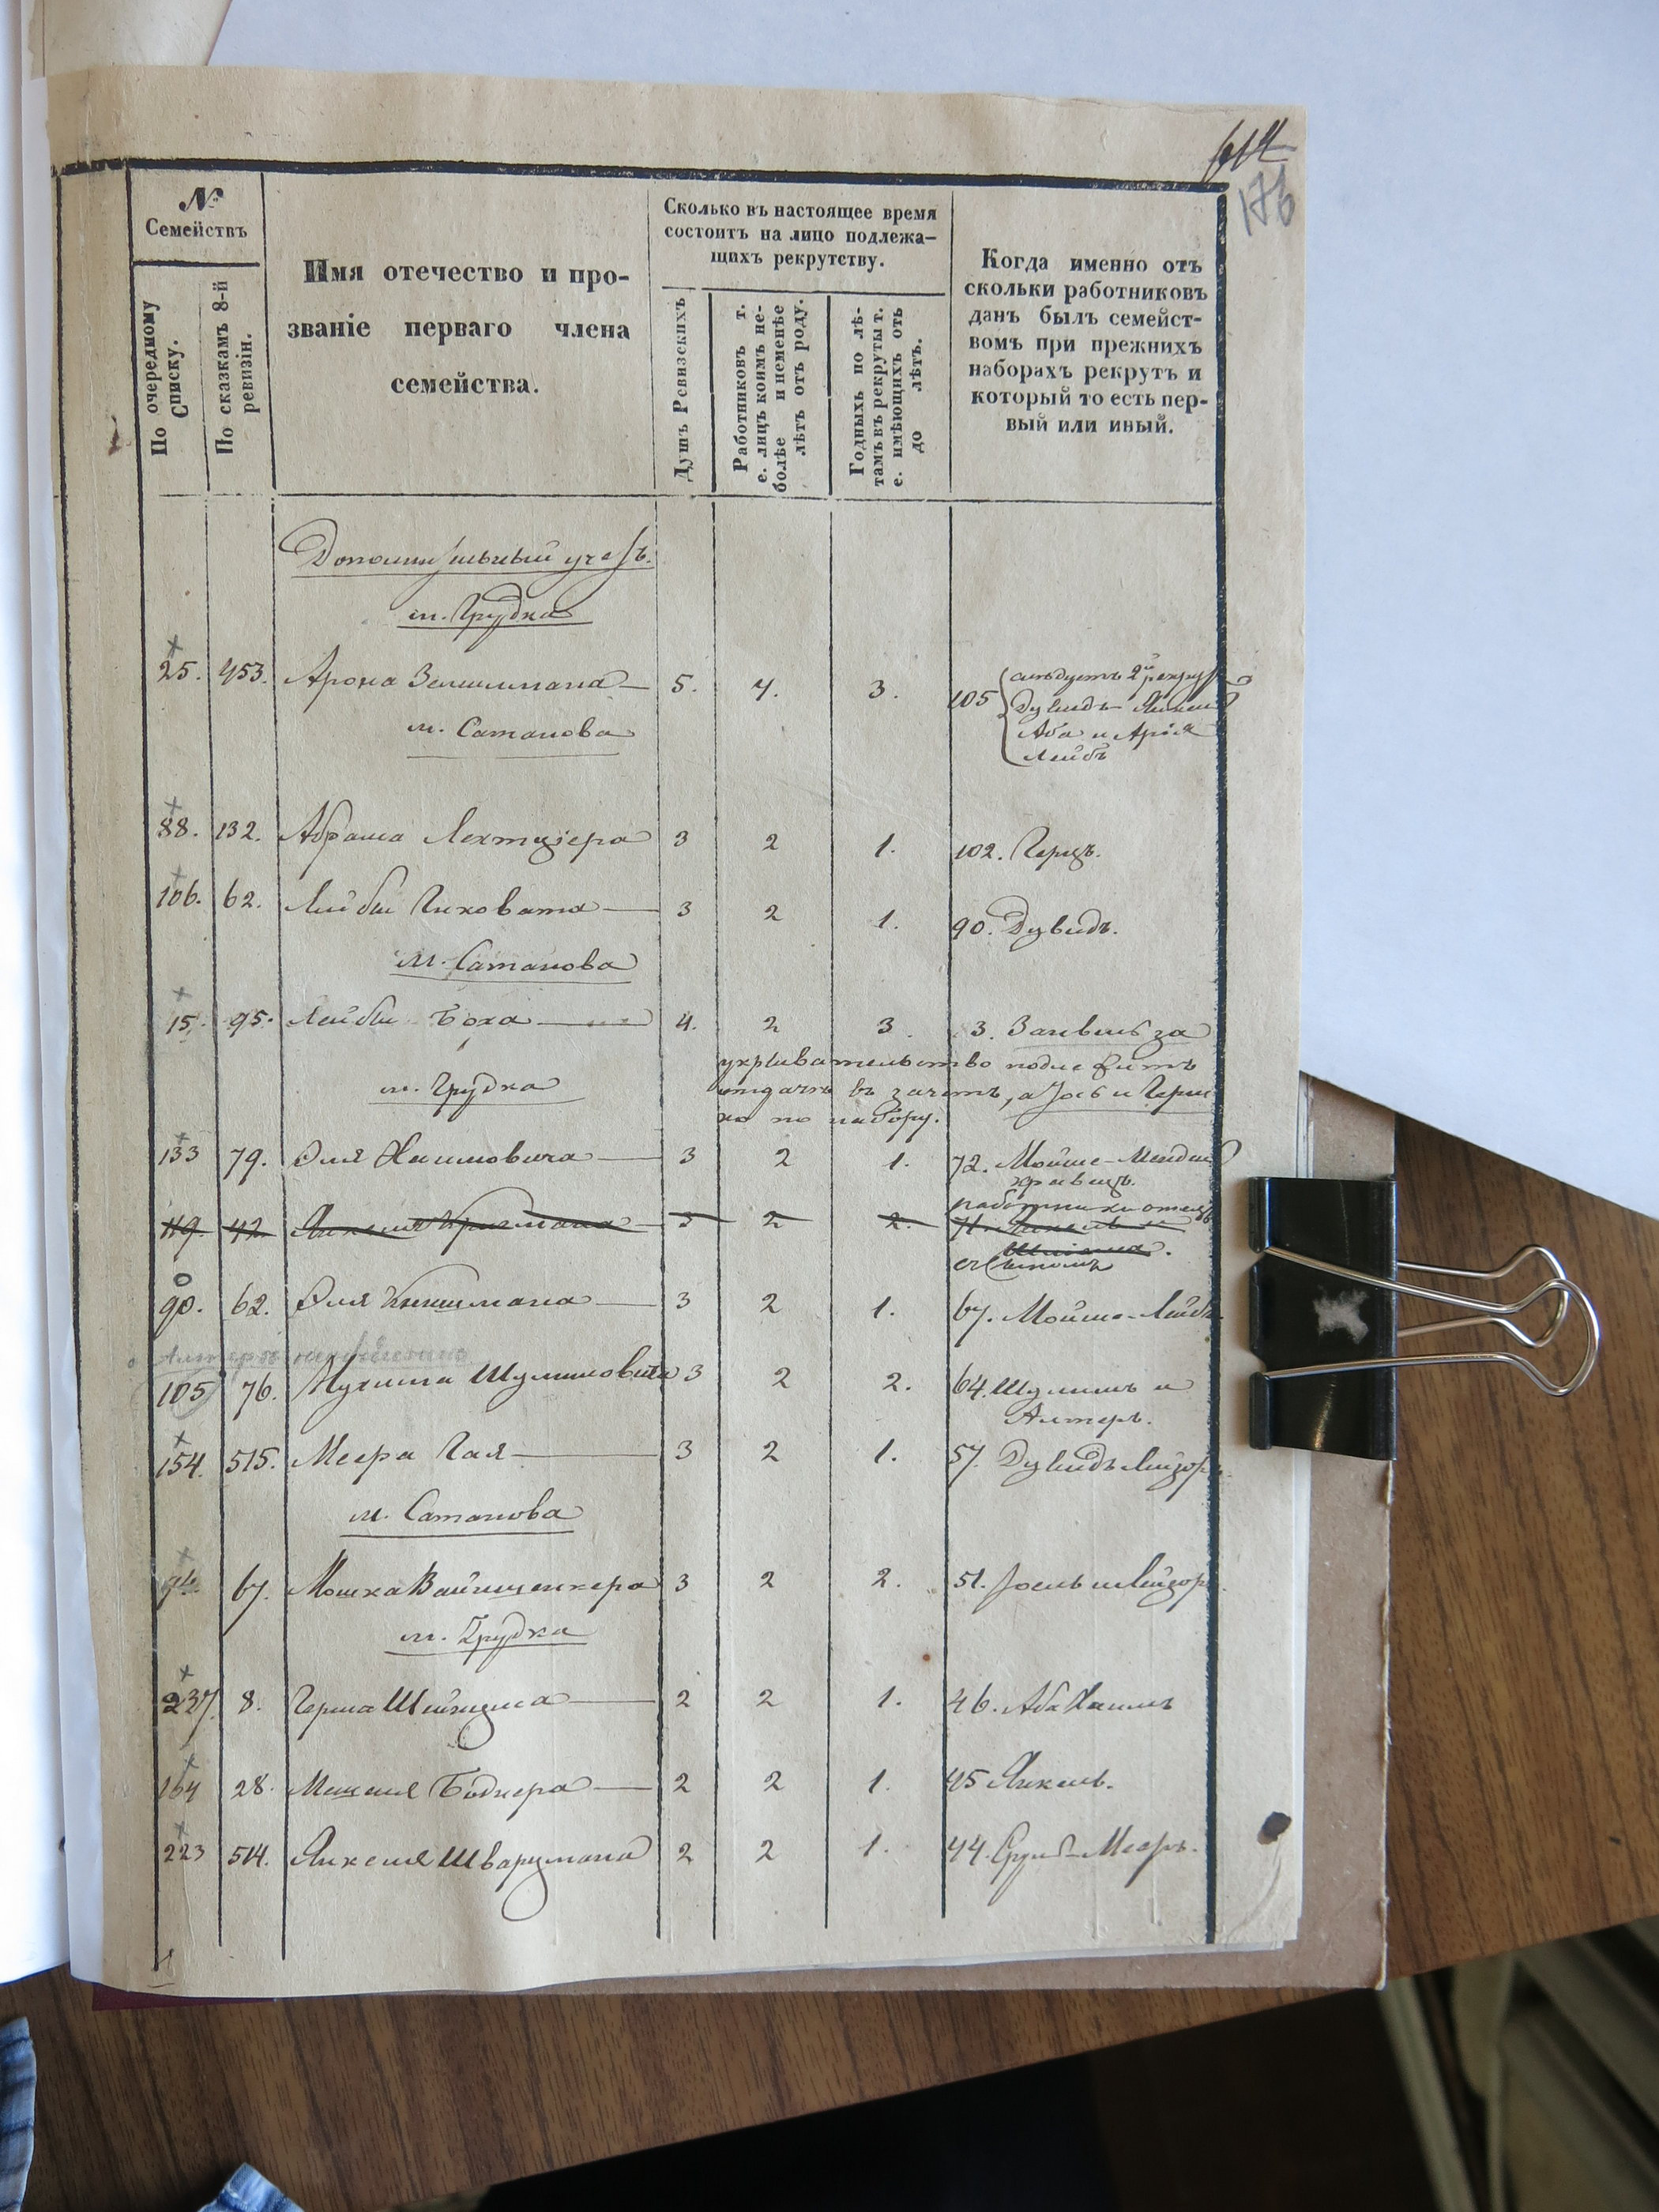 176
№
Семействъ
По очередному
Списку.
По сказкамъ 8-й
ревизіи.
Имя отечество и про-
званіе перваго члена
семейства.
Сколько въ настоящее время
состоитъ на лицо подлежа-
щихъ рекрутству.
Душъ Ревизскихъ
Работниковъ т.
е. лицъ коимъ не-
болѣе и неменѣе
лѣтъ отъ роду.
Годныхъ по лѣ-
тамъ въ рекруты т.
е. имѣющихъ отъ
до лѣтъ.
Когда именно отъ
скольки работниковъ
данъ былъ семейст-
вомъ при прежнихъ
наборахъ рекрутъ и
который то есть пер-
вый или иный.
Дополнительный
м. Грудка
25. 453. Арона 5. 4. 3. 105 слѣдуетъ 2й
Дувидъ
Аба и Арія
Лейбъ
м. Сатанова
88. 132. Абрама Лехтціера 3 2 1. 102. Герцъ.
106. 62. Лейбы 3 2 1. 90. Дувидъ.
м. Сатанова
15. 95. Лейбы Боха 4. 2 3. 3. за
укрывательство подлежитъ
отдачѣ въ зачетъ, а Іось и Герш
ко по набору.
м. Грудка
133 79. Эля Хаимовича 3 2 1. 72. Мойше-Мендель
119. 42. 3 2 2. работники отецъ
съ Сыномъ
90. 62. Эля 3 2 1. 67. Мойше-Лейбъ
105 76. Нухима Шулимовича 3 2 2. 64. Шулимъ и
Алтеръ.
154. 515. Меера Гая 3 2 1. 57. Дувидъ Лейзоръ
м. Сатанова
74. 67. Мошка Вайншенкера 3 2 2. 51. Іосель и Лейзоръ
м. Грудка
237 8. Герша 2 2 1. 46. Аба Хаимъ
164 28. Боднера 2 2 1. 45 Янкель.
223 514. Янкеля Шварцмана 2 2 1. 44. Сруль-Мееръ.